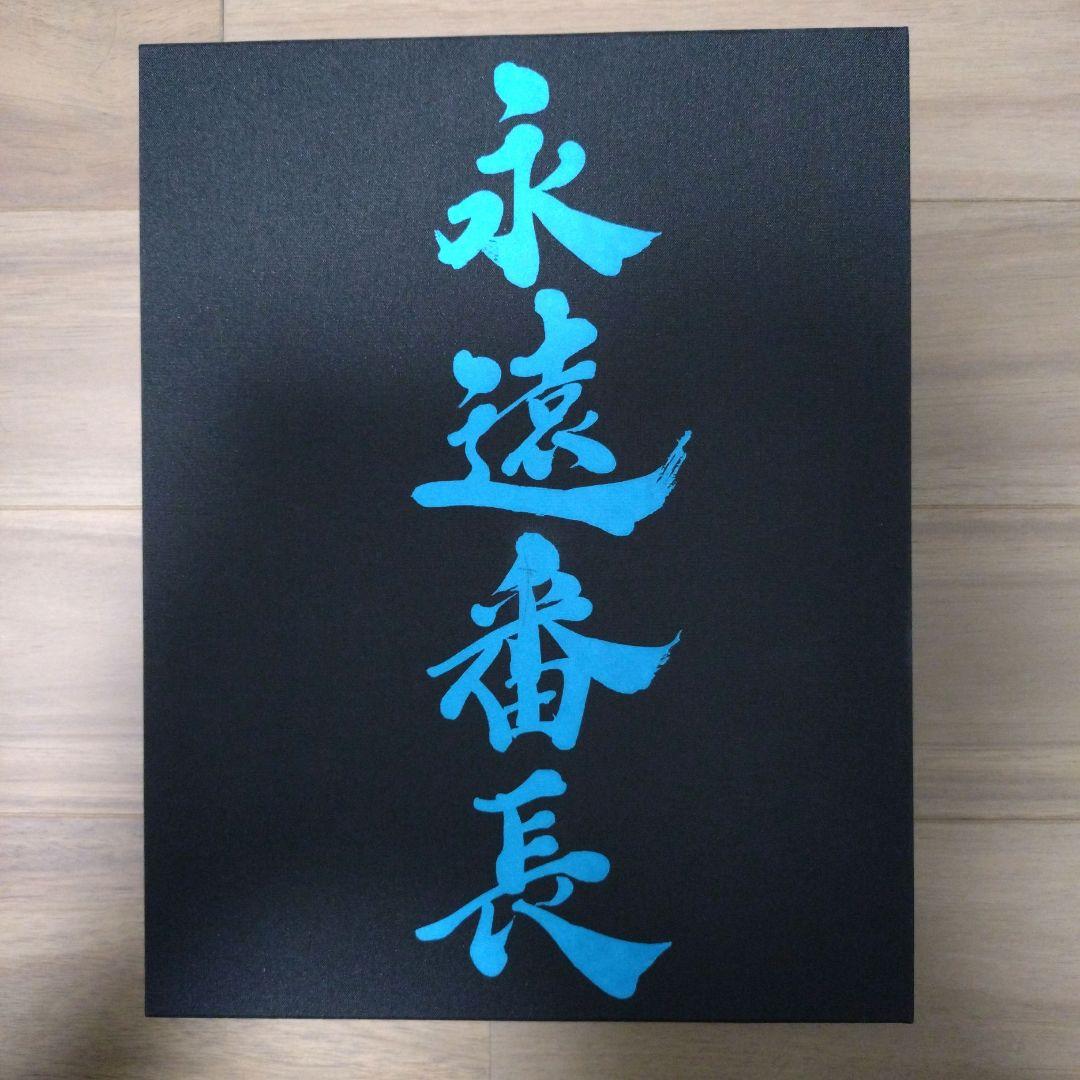 永遠番長